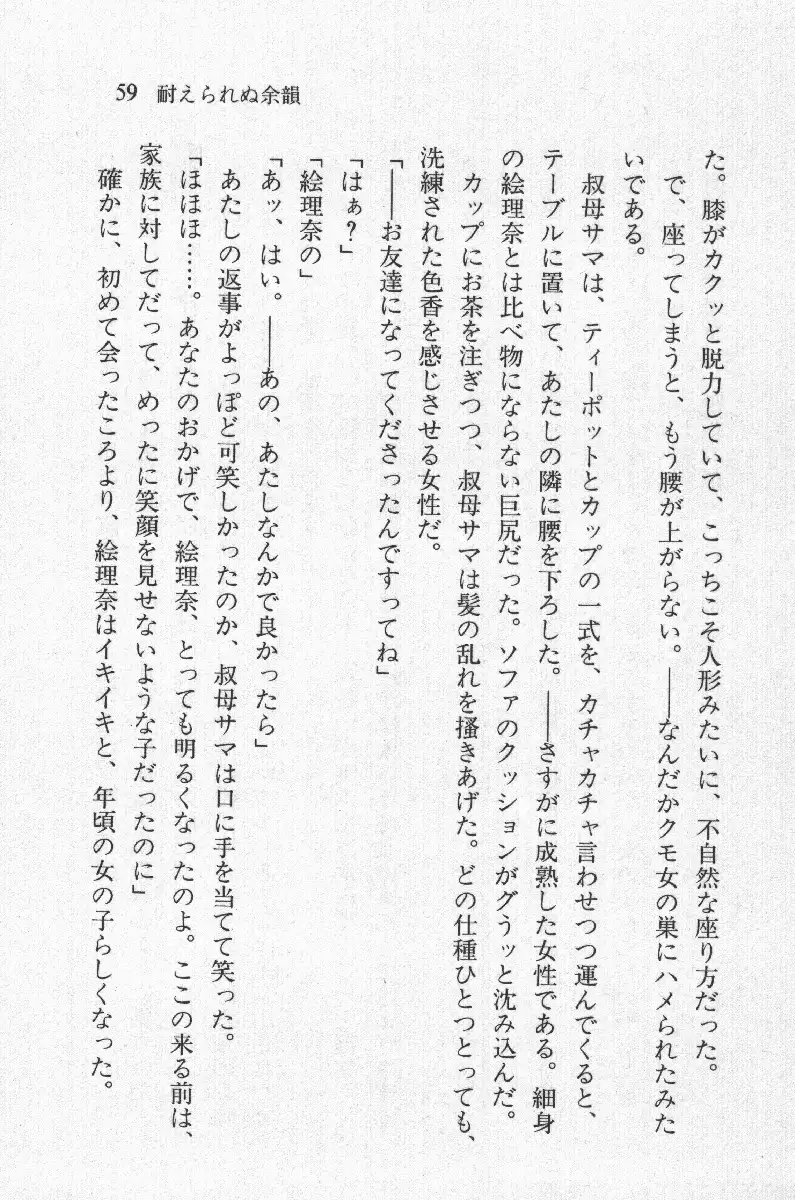 59 耐えられぬ余韻
た。膝がカクッと脱力していて、こっちこそ人形みたいに、不自然な座り方だった。
で、座ってしまうと、もう腰が上がらない。――なんだかクモ女の巣にハメられたみた
いである。
叔母サマは、ティーポットとカップの一式を、カチャカチャ言わせつつ運んでくると、
テーブルに置いて、あたしの隣に腰を下ろした。――さすがに成熟した女性である。細身
の絵理奈とは比べ物にならない巨尻だった。ソファのクッションがグうッと沈み込んだ。
カップにお茶を注ぎつつ、叔母サマは髪の乱れを掻きあげた。どの仕種ひとつとっても、
洗練された色香を感じさせる女性だ。
「――お友達になってくださったんですってね」
「はぁ?」
「絵理奈の」
「あッ、はい。――あの、あたしなんかで良かったら」
あたしの返事がよっぽど可笑しかったのか、叔母サマは口に手を当てて笑った。
「ほほほ……。あなたのおかげで、絵理奈、とっても明るくなったのよ。ここの来る前は、
家族に対してだって、めったに笑顔を見せないような子だったのに」
確かに、初めて会ったころより、絵理奈はイキイキと、年頃の女の子らしくなった。